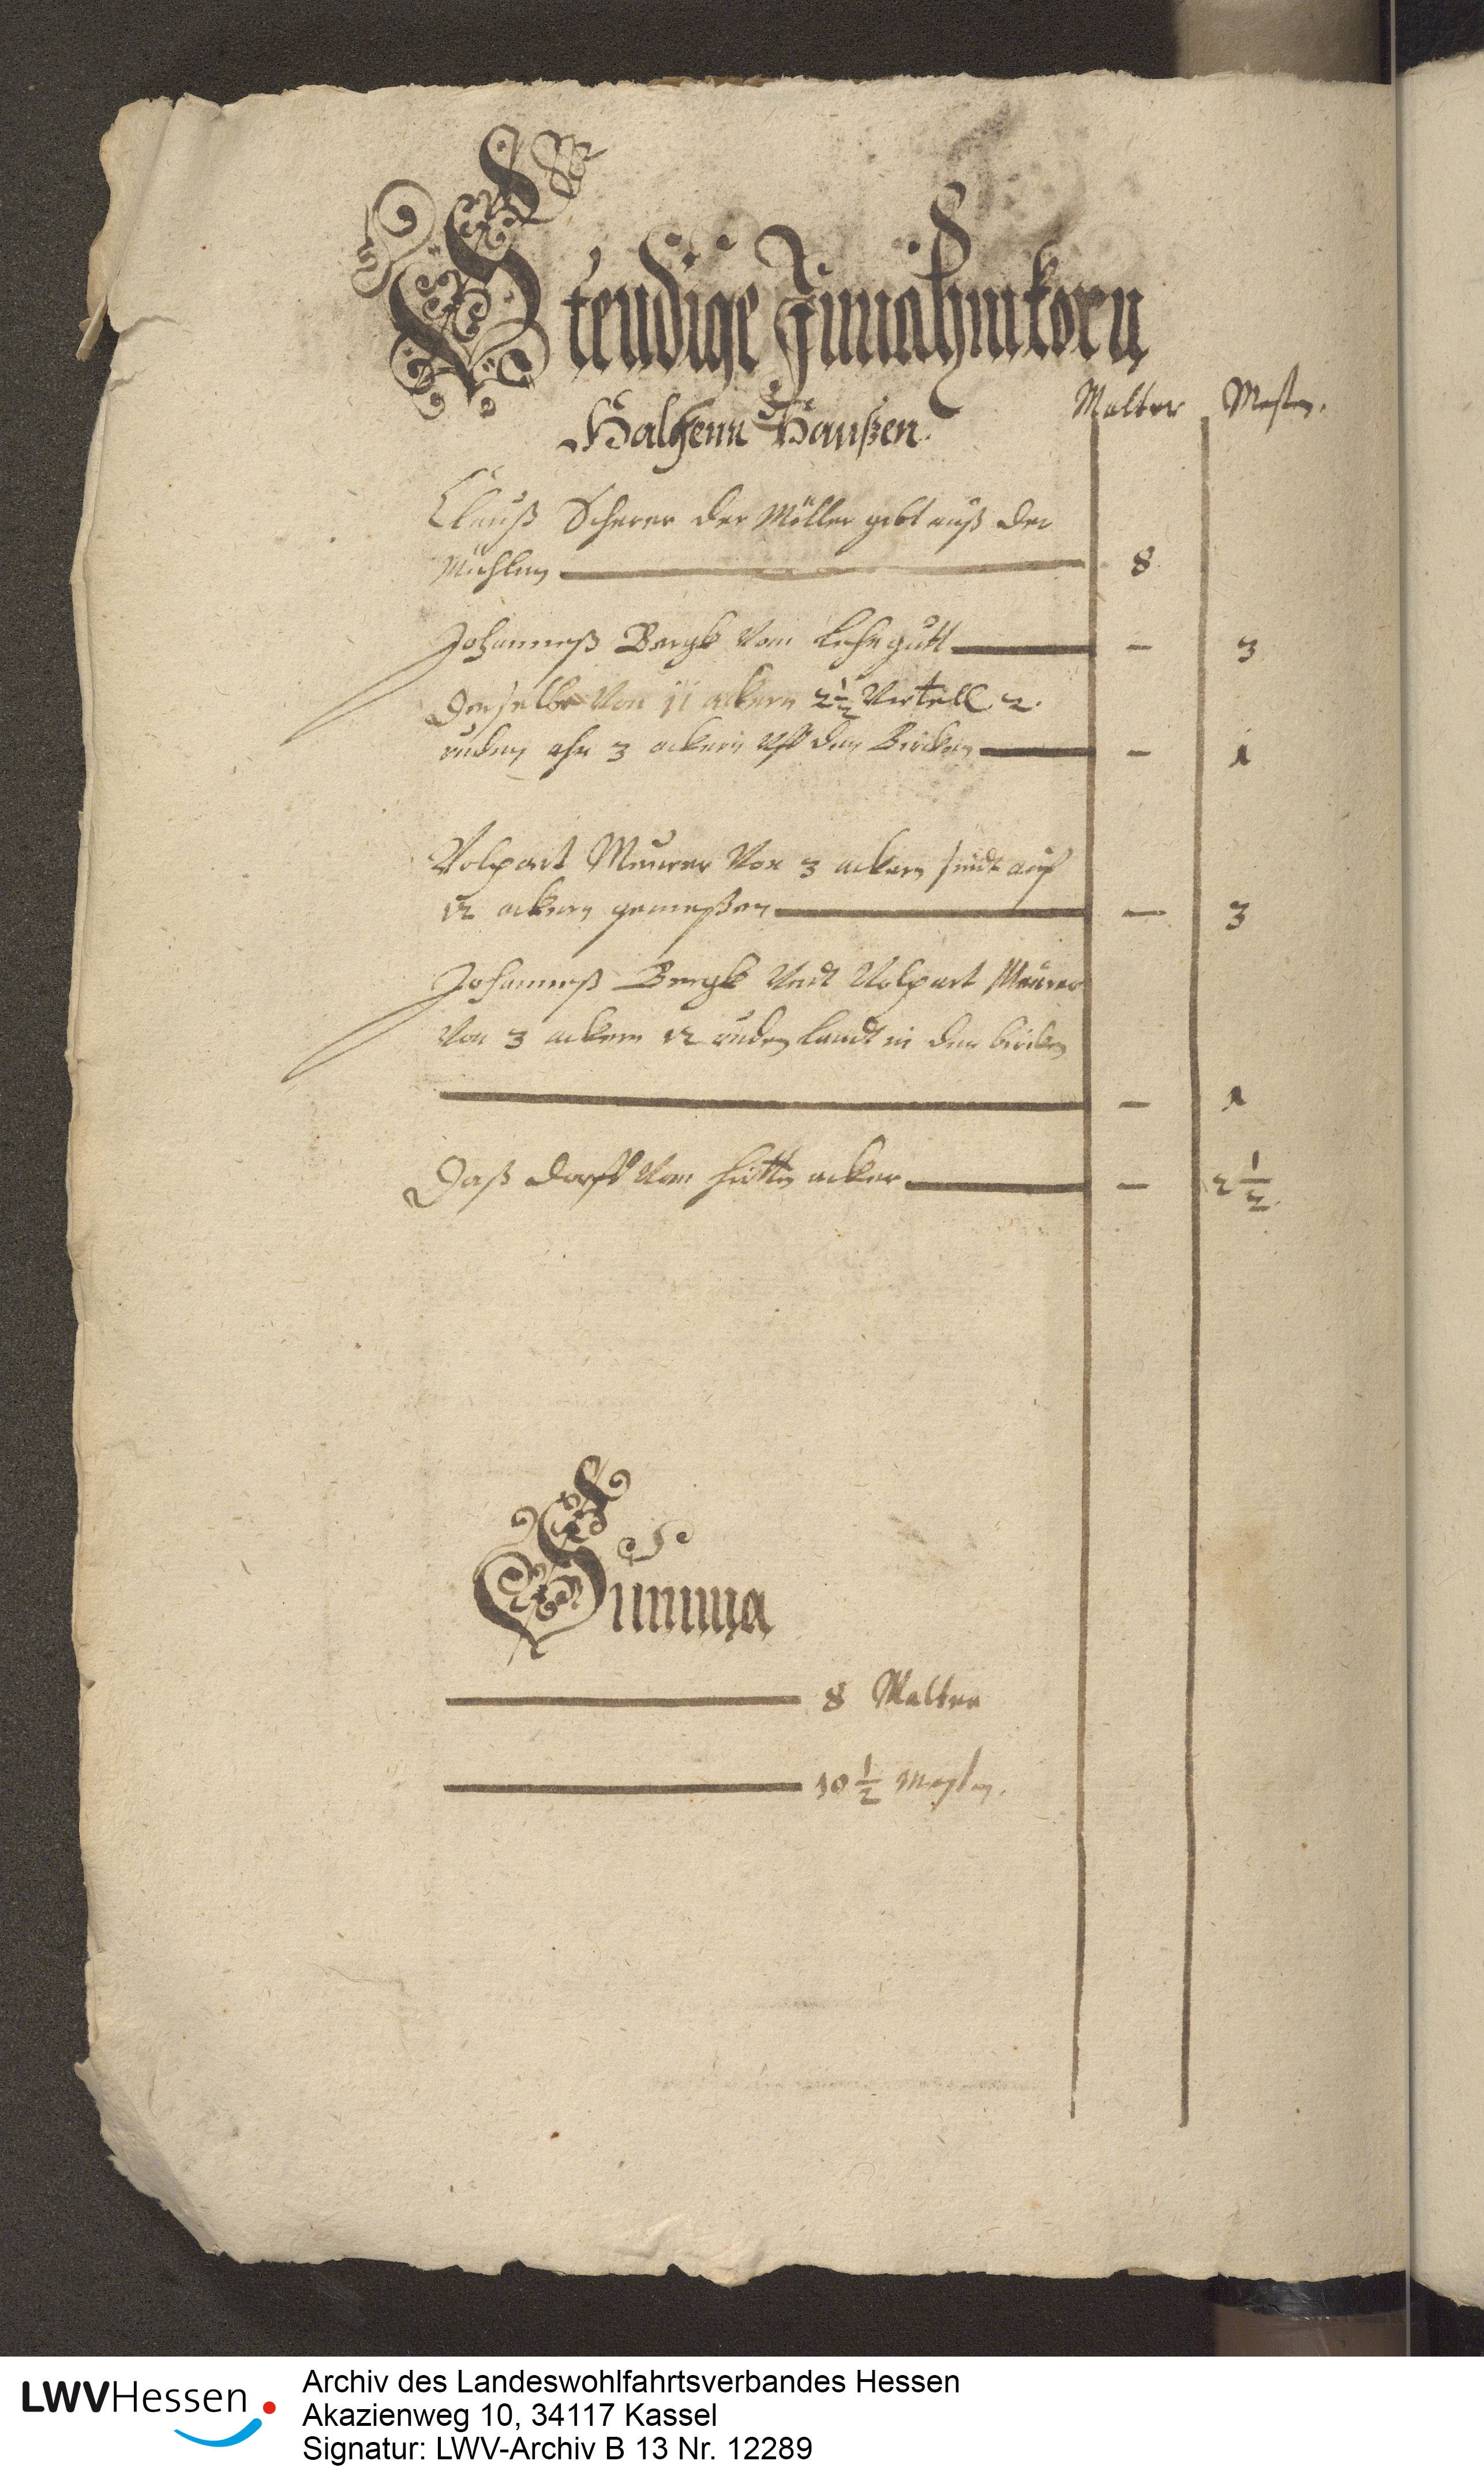 Stendige Innahm korn
Halgenn Haußen.
Malter Mesten.
Clauß Scherer der Möller gibt auß der
Mühlen 8
Johanneß Bergk Vom Lehngutt - 3
Derselbe Von 11 ackern 2½ Virtell 2.
ruden ahn 3 ackern Uff den Bircken - 1
Volpart Meurer Von 3 ackern sindt auf
12 ackern gemeßen - 3
Johanneß Bergk Undt Volpart Meurer
Von 3 ackern 12 ruden landt in den bircken
- 1
Daß dorff Vom hirtten acker - 2½.
Summa
8 Malter
10½ Mesten.
LWVHessen
Archiv des Landeswohlfahrtsverbandes Hessen
Akazienweg 10, 34117 Kassel
Signatur: LWV-Archiv B 13 Nr. 12289